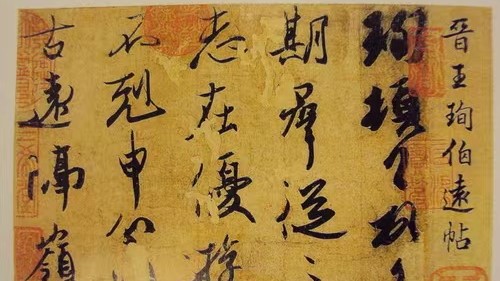 晉王珣伯遠帖
珣頓首頓首
期羣從之
志在優遊
不剋申分
古遠隔嶺